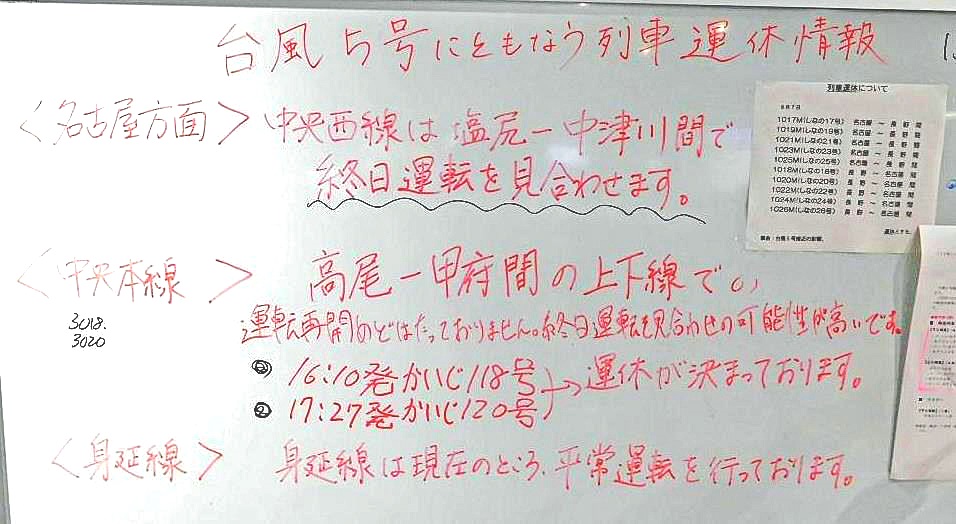 台風5号にともなう列車運休情報
<名古屋方面> 中央西線は塩尻ー中津川間で
終日運転を見合わせます。
列車運休について
8月7日
1017M(しなの17号) 名古屋 ～ 長野 間
1019M(しなの19号) 名古屋 ～ 長野 間
1021M(しなの21号) 名古屋 ～ 長野 間
1023M(しなの23号) 名古屋 ～ 長野 間
1025M(しなの25号) 名古屋 ～ 長野 間
1018M(しなの18号) 長野 ～ 名古屋 間
1020M(しなの20号) 長野 ～ 名古屋 間
1022M(しなの22号) 長野 ～ 名古屋 間
1024M(しなの24号) 長野 ～ 名古屋 間
1026M(しなの26号) 長野 ～ 名古屋 間
運休とする。
<中央本線> 高尾ー甲府間の上下線で。,
3018.
3020
運転再開のめどはたっておりません。終日運転を見合わせの可能性が高いです。
16:10発かいじ118号
② 17:27発かいじ120号
→運休が決まっております。
<身延線> 身延線は現在のところ、平常運転を行っております。